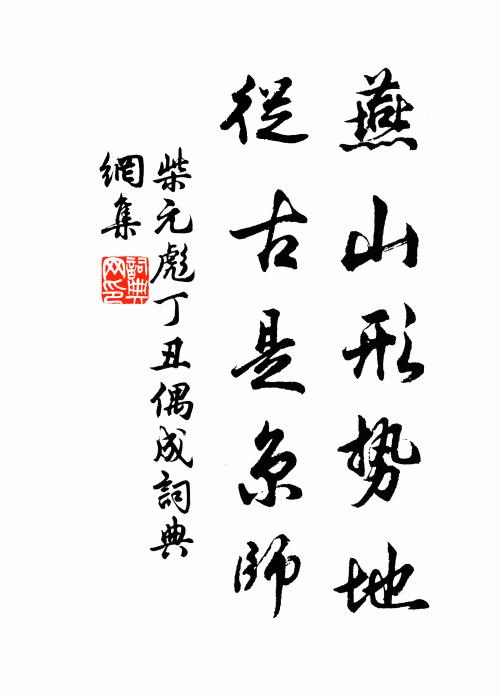 燕山形势地
從古是京師
柴元彪丁丑偶成詞典
網集
詞典
网印